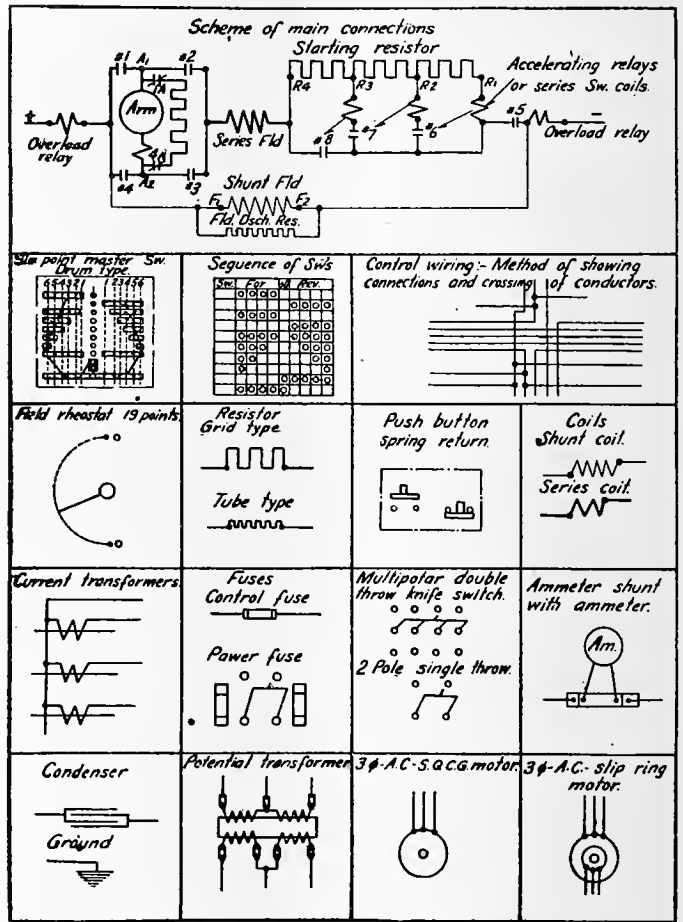 Scheme of main connections
Starting resistor
#1 A1 #2
1A
Arm
4A
#4 A2 #3
+
Overload
relay
Series Fld
R4 R3 R2 R1
#8 #7 #6
Accelerating relays
or series Sw. coils.
#5
−
Overload relay
Shunt Fld
F1 F2
Fld. Dsch. Res.
Six point master Sw.
Drum type.
654321 123456
Sequence of Sw's
Sw. For Off Rev.
Control wiring:- Method of showing
connections and crossing of conductors.
Field rheostat 19 points.
Resistor
Grid type
Tube type
Push button
spring return.
Coils
Shunt coil.
Series coil.
Current transformers.
Fuses
Control fuse
Power fuse
Multipolar double
throw knife switch.
2 Pole single throw.
Ammeter shunt
with ammeter.
Am.
Condenser
Ground
Potential transformer
3φ-A.C-S.Q.C.G. motor.
3φ-A.C.- slip ring
motor.